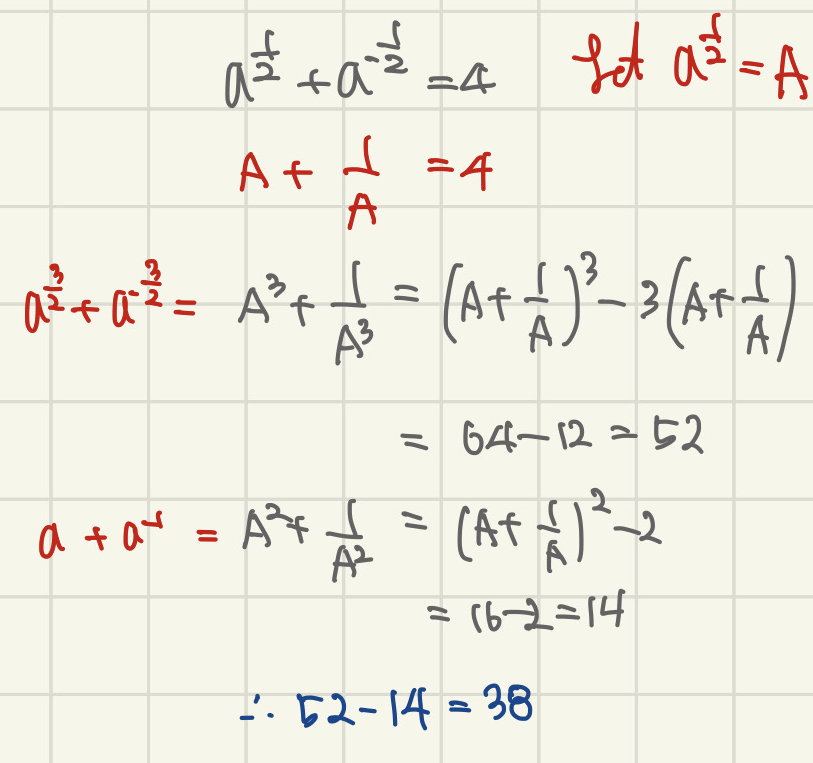 a^{\frac{1}{2}} + a^{-\frac{1}{2}} = 4 let a^{\frac{1}{2}} = A
A + \frac{1}{A} = 4
a^{\frac{3}{2}} + a^{-\frac{3}{2}} = A^3 + \frac{1}{A^3} = \left(A + \frac{1}{A}\right)^3 - 3\left(A + \frac{1}{A}\right)
= 64 - 12 = 52
a + a^{-1} = A^2 + \frac{1}{A^2} = \left(A + \frac{1}{A}\right)^2 - 2
= 16 - 2 = 14
∴ 52 - 14 = 38